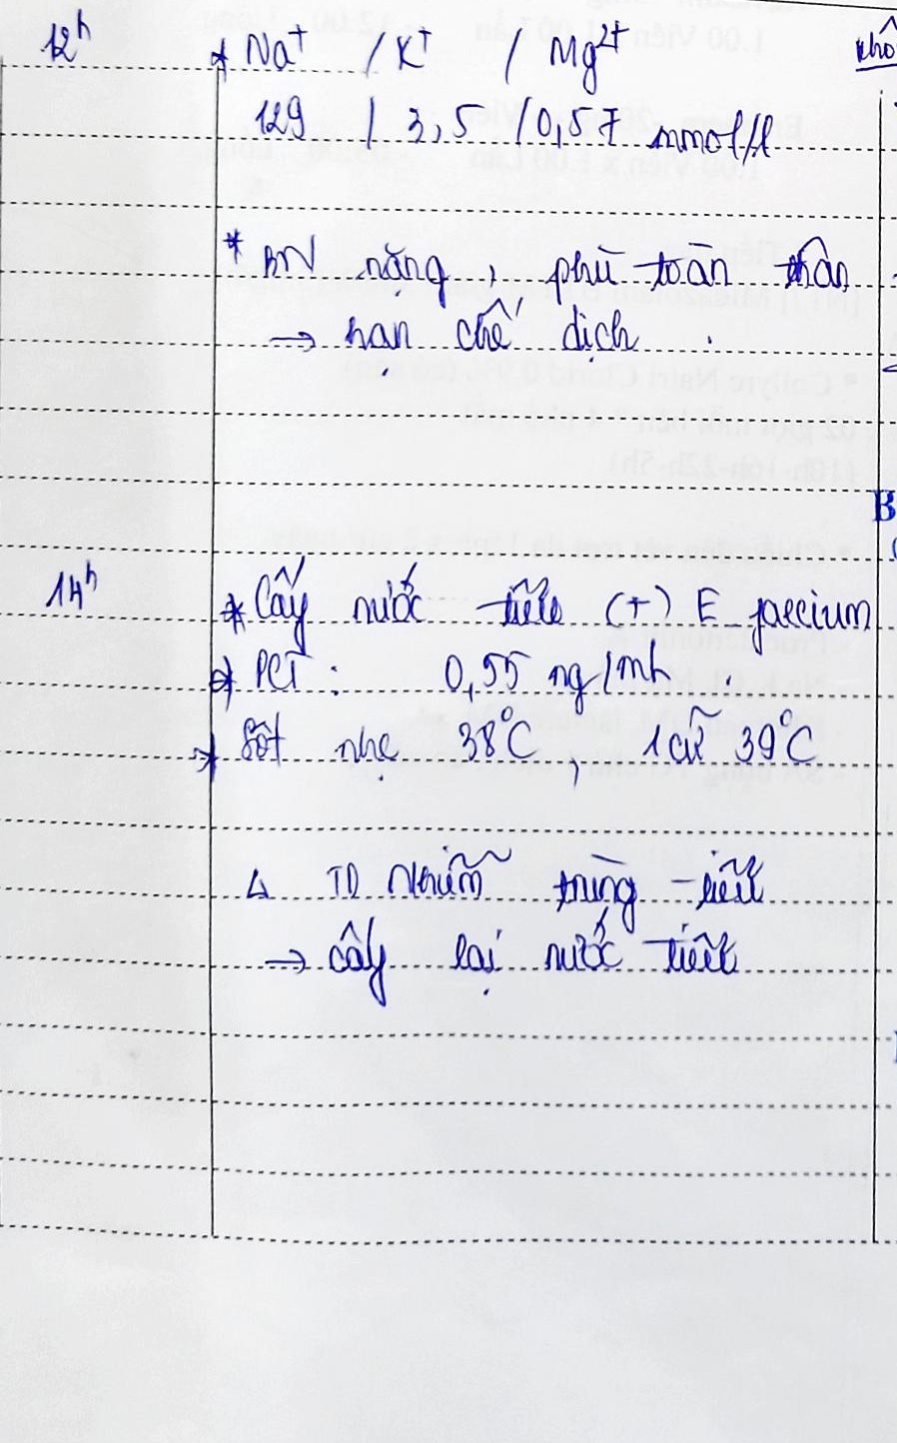 12h
* Na+ / K+ / Mg2+
129 / 3,5 / 0,57 mmol/l
* BN nặng, phù toàn thân
→ hạn chế dịch.
14h
* Cấy nước tiểu (+) E faecium
* PCT: 0,55 ng/mL
* Sốt nhẹ 38°C, 1 cữ 39°C
Δ TD Nhiễm trùng tiểu
→ cấy lại nước tiểu